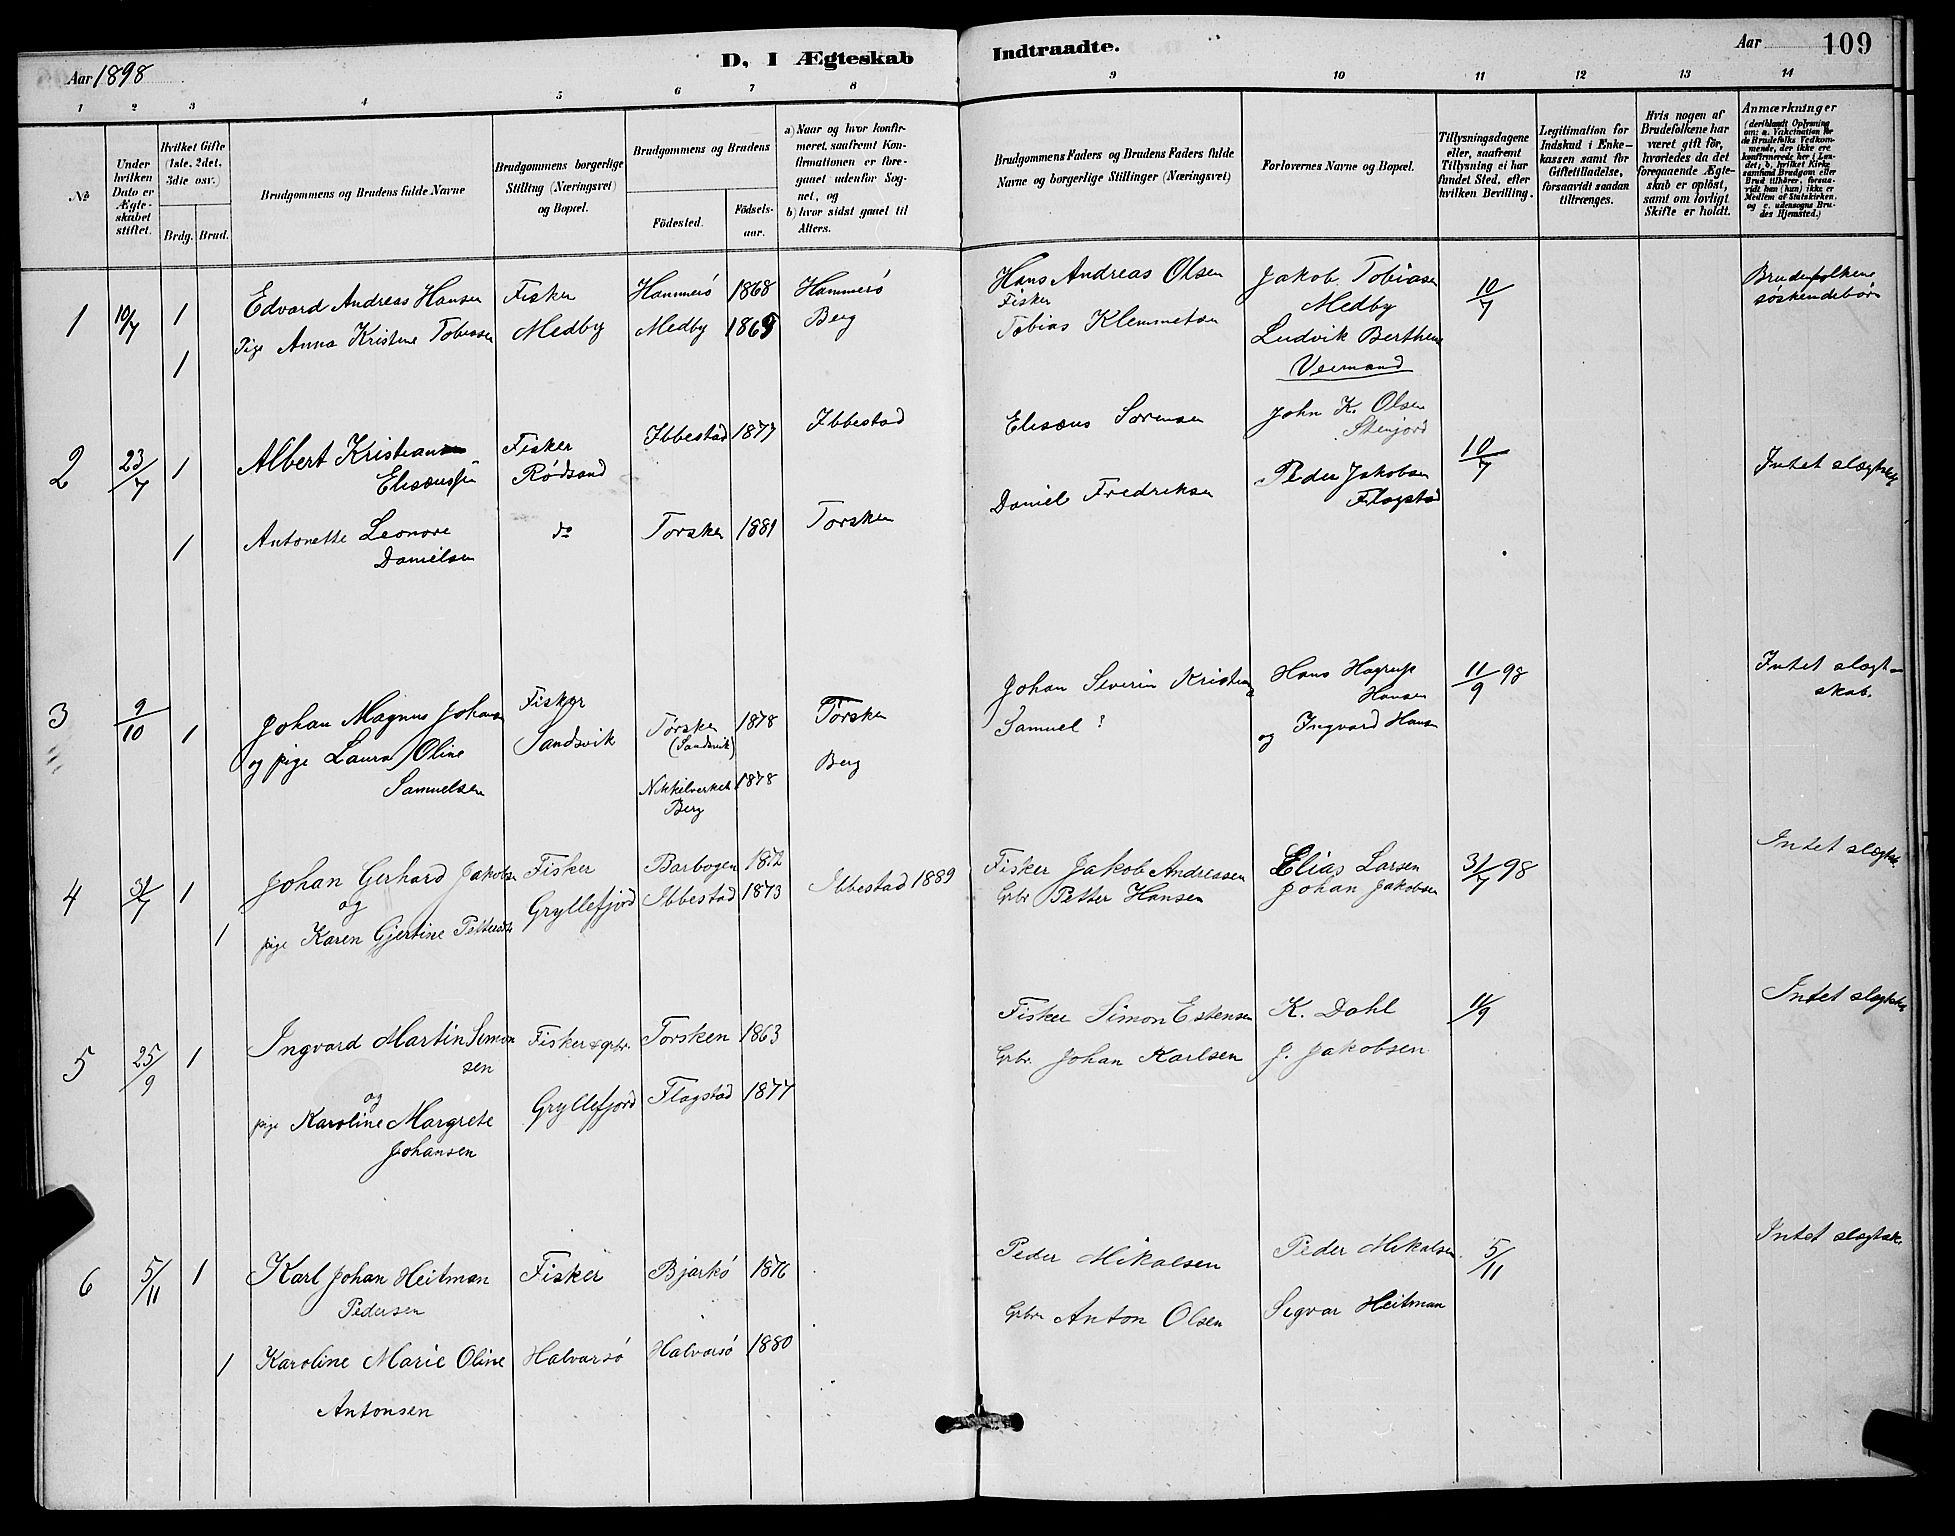 D, I Ægteskab Indtraadte.
Aar 1898
Aar 109
1 2 3 4 5 6 7 8 9 10 11 12 13 14
№
Under hvilken Dato er Ægteskabet stiftet.
Hvilket Gifte (1ste, 2det, 3die osv.)
Brdg. Brud.
Brudgommens og Brudens fulde Navne
Brudgommens borgerlige Stilling (Næringsvei) og Bopæl.
Brudgommens og Brudens
Fødested.
Fødselsaar.
a) Naar og hvor konfirmeret, saafremt Konfirmationen er foregaaet udenfor Sognet, og
b) hvor sidst gaaet til Alters.
Brudgommens Faders og Brudens Faders fulde Navne og borgerlige Stillinger (Næringsvei)
Forlovernes Navne og Bopæl.
Tillysningsdagene eller, saafremt Tillysning ei har fundet Sted, efter hvilken Bevilling.
Legitimation for Indskud i Enkekassen samt for Giftetilladelse, forsaavidt saadan tiltrænges.
Hvis nogen af Brudefolkene har været gift før, hvorledes da det foregaaende Ægteskab er opløst, samt om lovligt Skifte er holdt.
Anmærkninger (deriblandt Oplysning om: a. Vakcination for de Brudefolks Vedkommende, der ikke ere konfirmerede her i Landet; b. hvilket Kirkesamfund Brudgom eller Brud tilhører, forsaavidt han (hun) ikke er Medlem af Statskirken, og c. udensogns Brudes Hjemsted.)
1 10/7 1 Edvard Andreas Hansen Fisker Hammerö 1868 Hammerö Hans Andreas Olsen Jakob Tobiasen 10/7 Brudefolkene
Fisker Medby söskendebörn
1 Pige Anna Kristine Tobiasen Medby Medby 1865 Berg Tobias Klemmetsen Ludvik Berthens
Veimand
2 23/7 1 Albert Kristian Fisker Ibbestad 1877 Ibbestad Elisæus Sörensen John K. Olsen 10/7 Intet slægtskab
Elisæussen Rödsand Stenjord
Daniel Fredriksen Peder Jakobsen
Flagstad
1 Antonette Leonore do Torsken 1881 Torsken
Danielsen
3 9/10 1 Johan Magnus Johansen Fisker Torsken 1878 Torsken Johan Severin Kristian Hans Hagrup 11/9 98 Intet slægt-
(Sandsvik) Hansen skab.
og pige Laura Oline Sandsvik Nikkilverket 1878 Berg Samuel? og Ingvard Hansen
Samuelsen Berg
4 31/7 1 Johan Gerhard Jakobsen Fisker Barbogen 1872 Fisker Jakob Andreasen Elias Larsen 31/7 98 Intet slægtsk.
og Gryllefjord Ibbestad 1873 Ibbestad 1889 Gpbr Petter Hansen Johan Jakobsen
1 pige Karen Gjertine Pettersen
5 25/9 1 Ingvard Martin Simon Fisker & gpbr. Torsken 1863 Fisker Simon Estensen K. Dahl 11/9 Intet slægtsk
sen Gpbr. Johan Karlsen J. Jakobsen
og
pige Karoline Margrete Gryllefjord Flagstad 1877
Johansen
6 5/11 1 Karl Johan Heitman Fisker Bjarkö 1876 Peder Mikalsen Peder Mikalsen 5/11 Intet slægtsk.
Pedersen Gpbr Anton Olsen Segvar Heitman
1 Karoline Marie Oline Halvarsö Halvarsö 1880
Antonsen